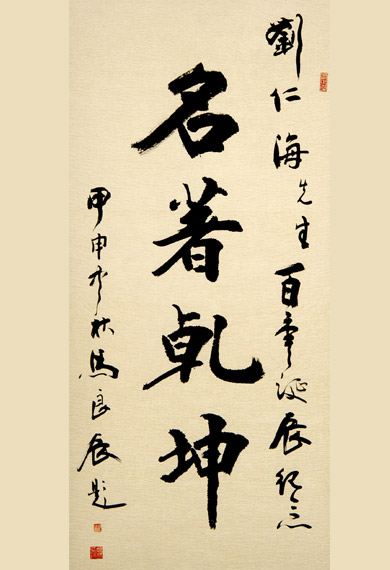 劉仁海先生百年誕辰纪念
名著乾坤
甲申秋馬良辰題